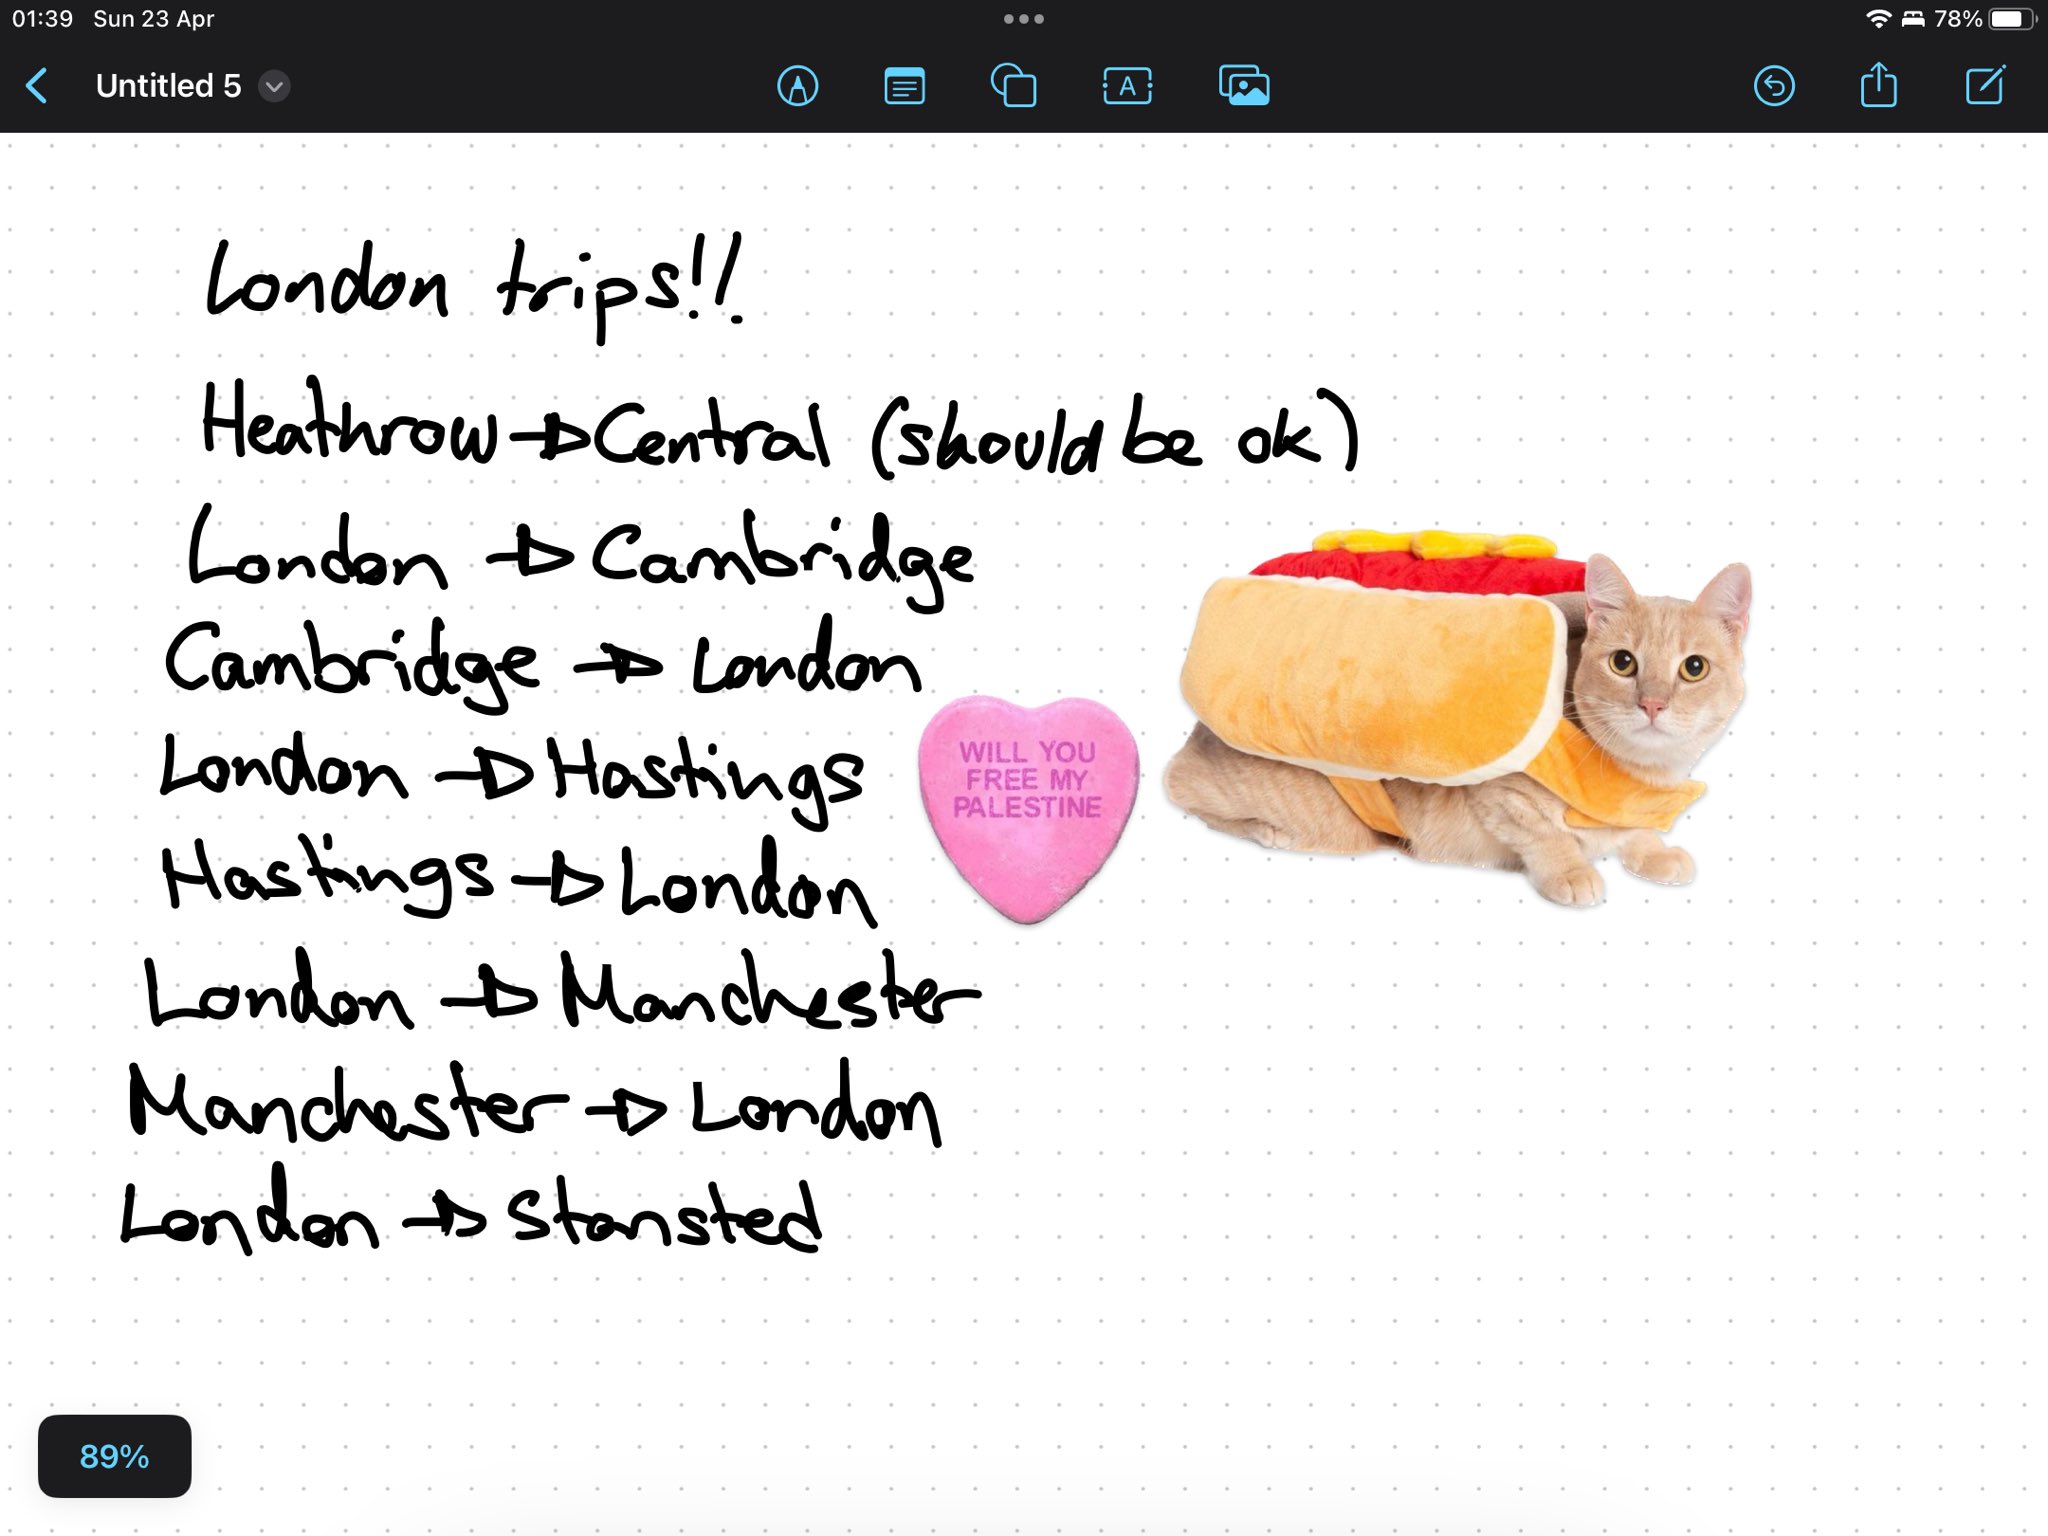 01:39 Sun 23 Apr
78%
Untitled 5
A
London trips!!
Heathrow → Central (should be ok)
London → Cambridge
Cambridge → London
London → Hastings
Hastings → London
London → Manchester
Manchester → London
London → Stansted
WILL YOU
FREE MY
PALESTINE
89%